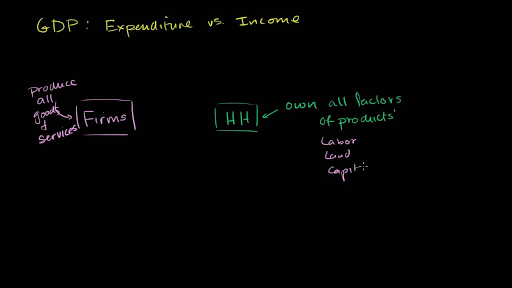 GDP: Expenditure vs. Income
Produce
all
goods
&
services
Firms
HH
own all factors
of products'
Labor
Land
Capit